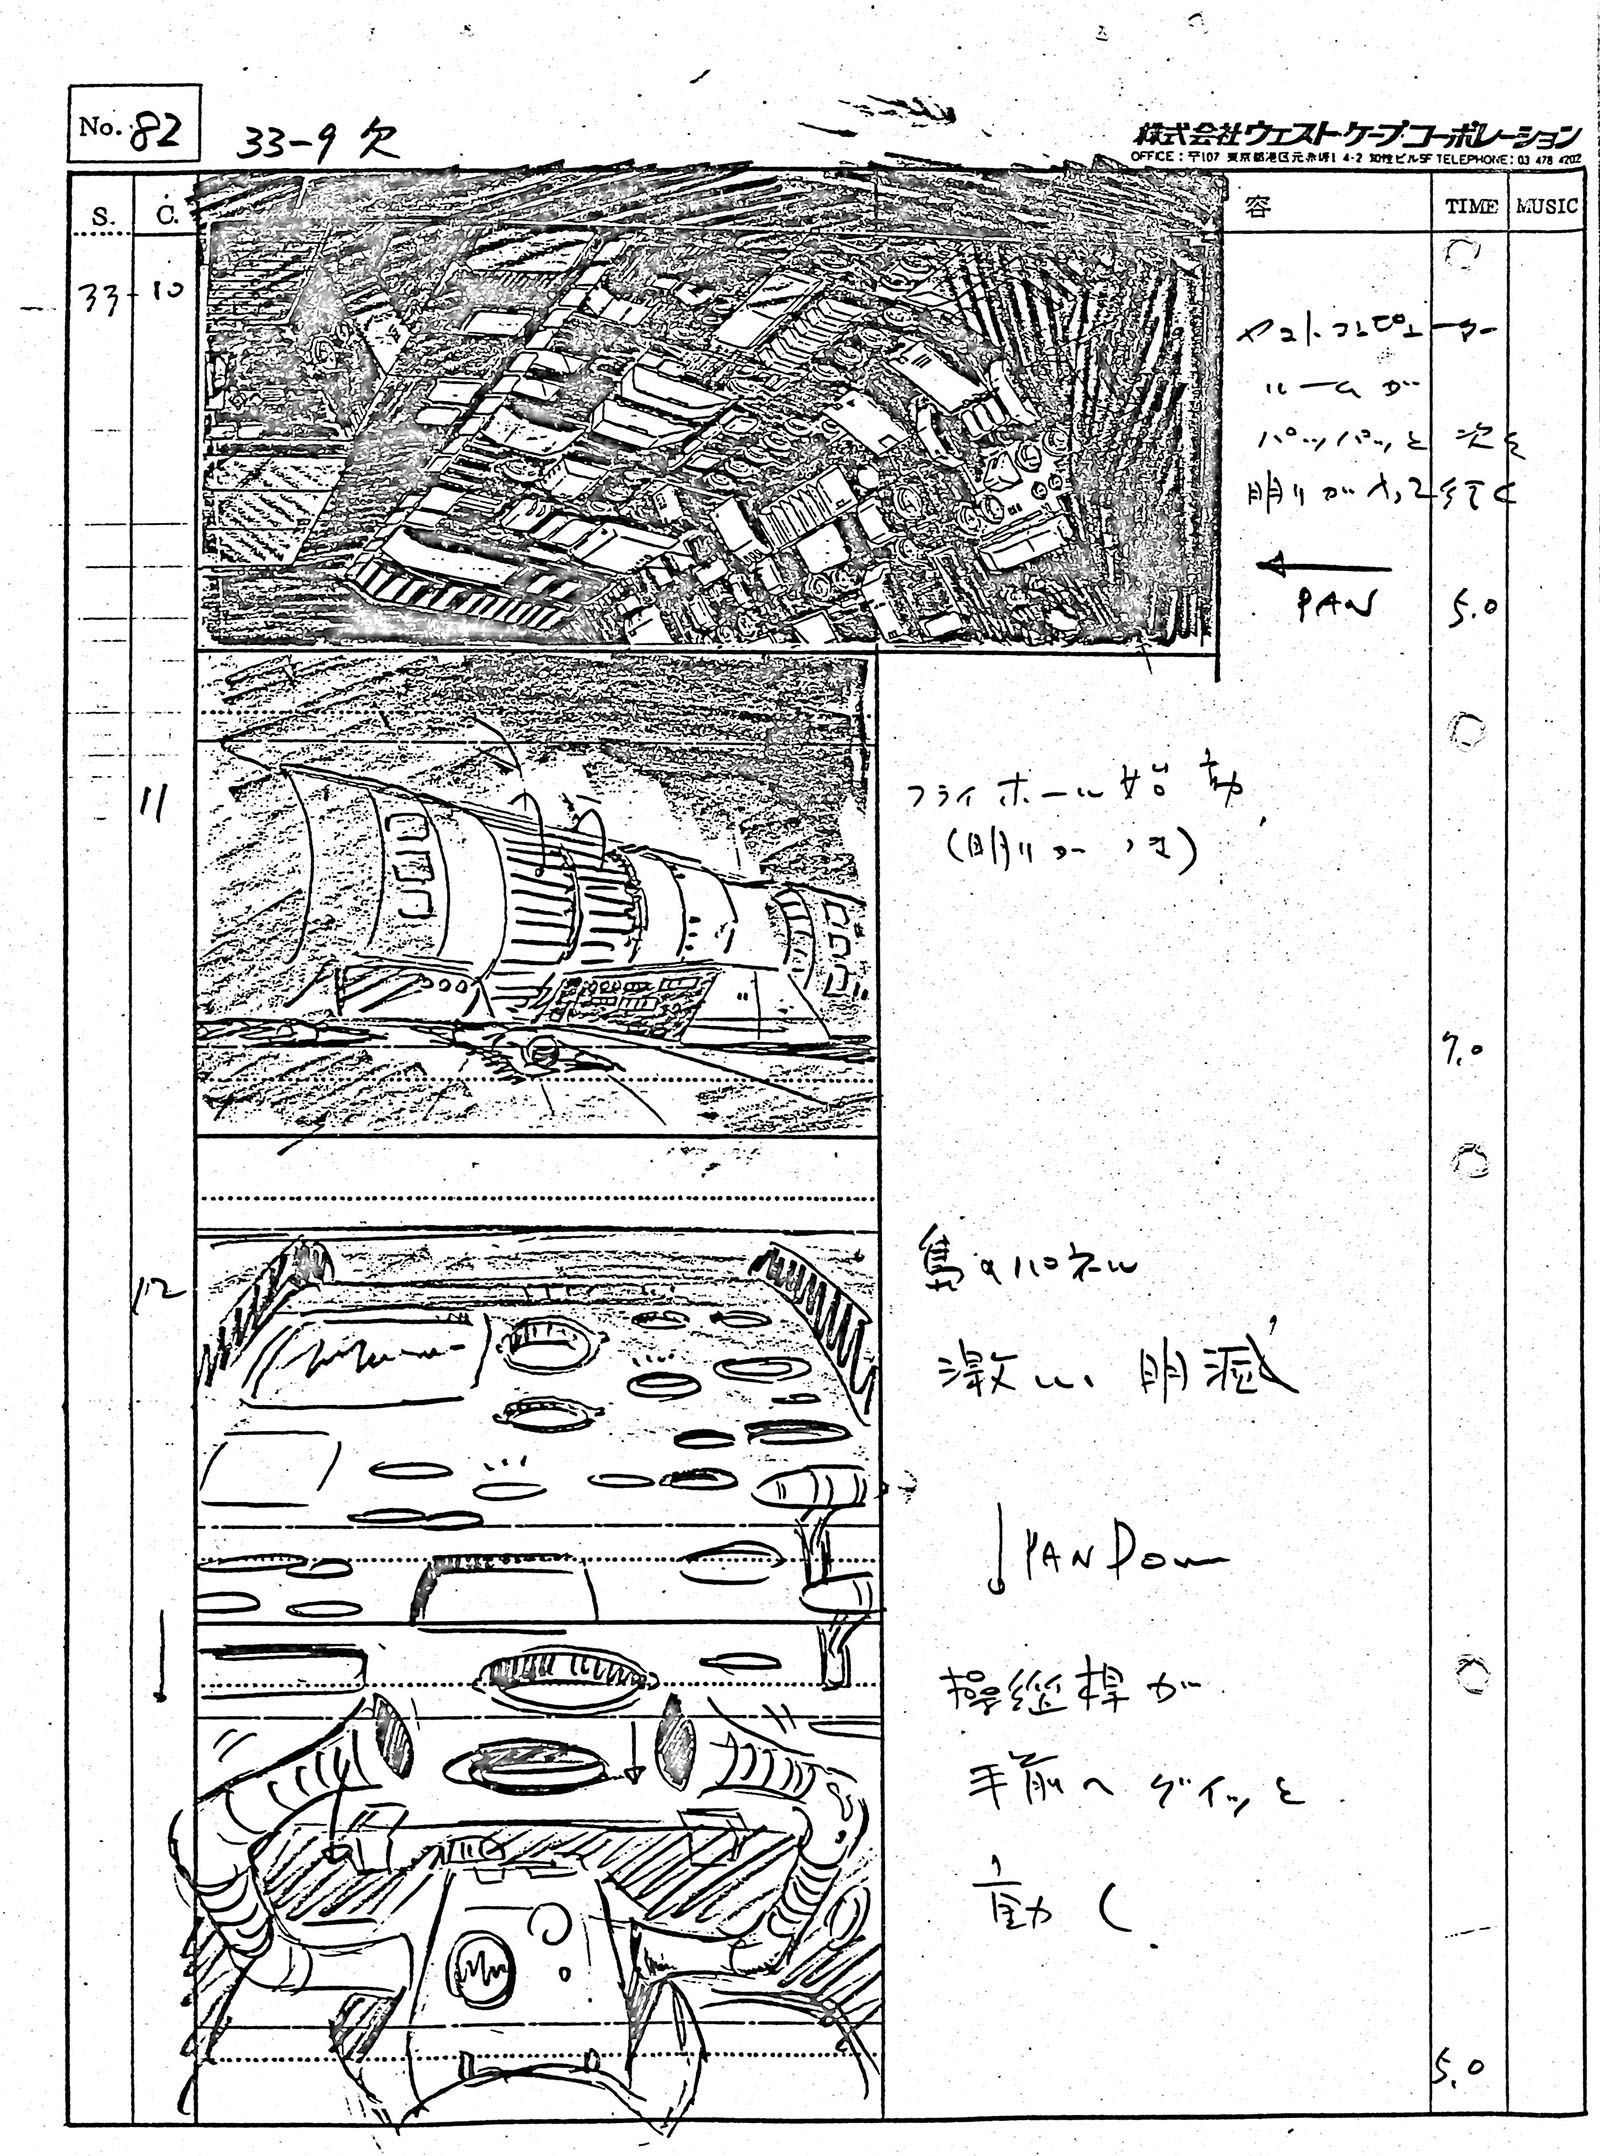 No. 82
33-9 欠
株式会社ウエスト・ケープ・コーポレーション
OFFICE：〒107 東京都港区元赤坂1 4-2 知性ビル5F TELEPHONE：03 478 4202
S. C. 容 TIME MUSIC
33 - 10
コンピューター
ルームが
パッパッと 次々
明りが入って行く
PAN
5.0
11
フライホイール始動
(明りがつき)
7.0
12
島のパネル
激しい明滅
PAN Down
操縦桿が
手前へグイッと
動く
5.0